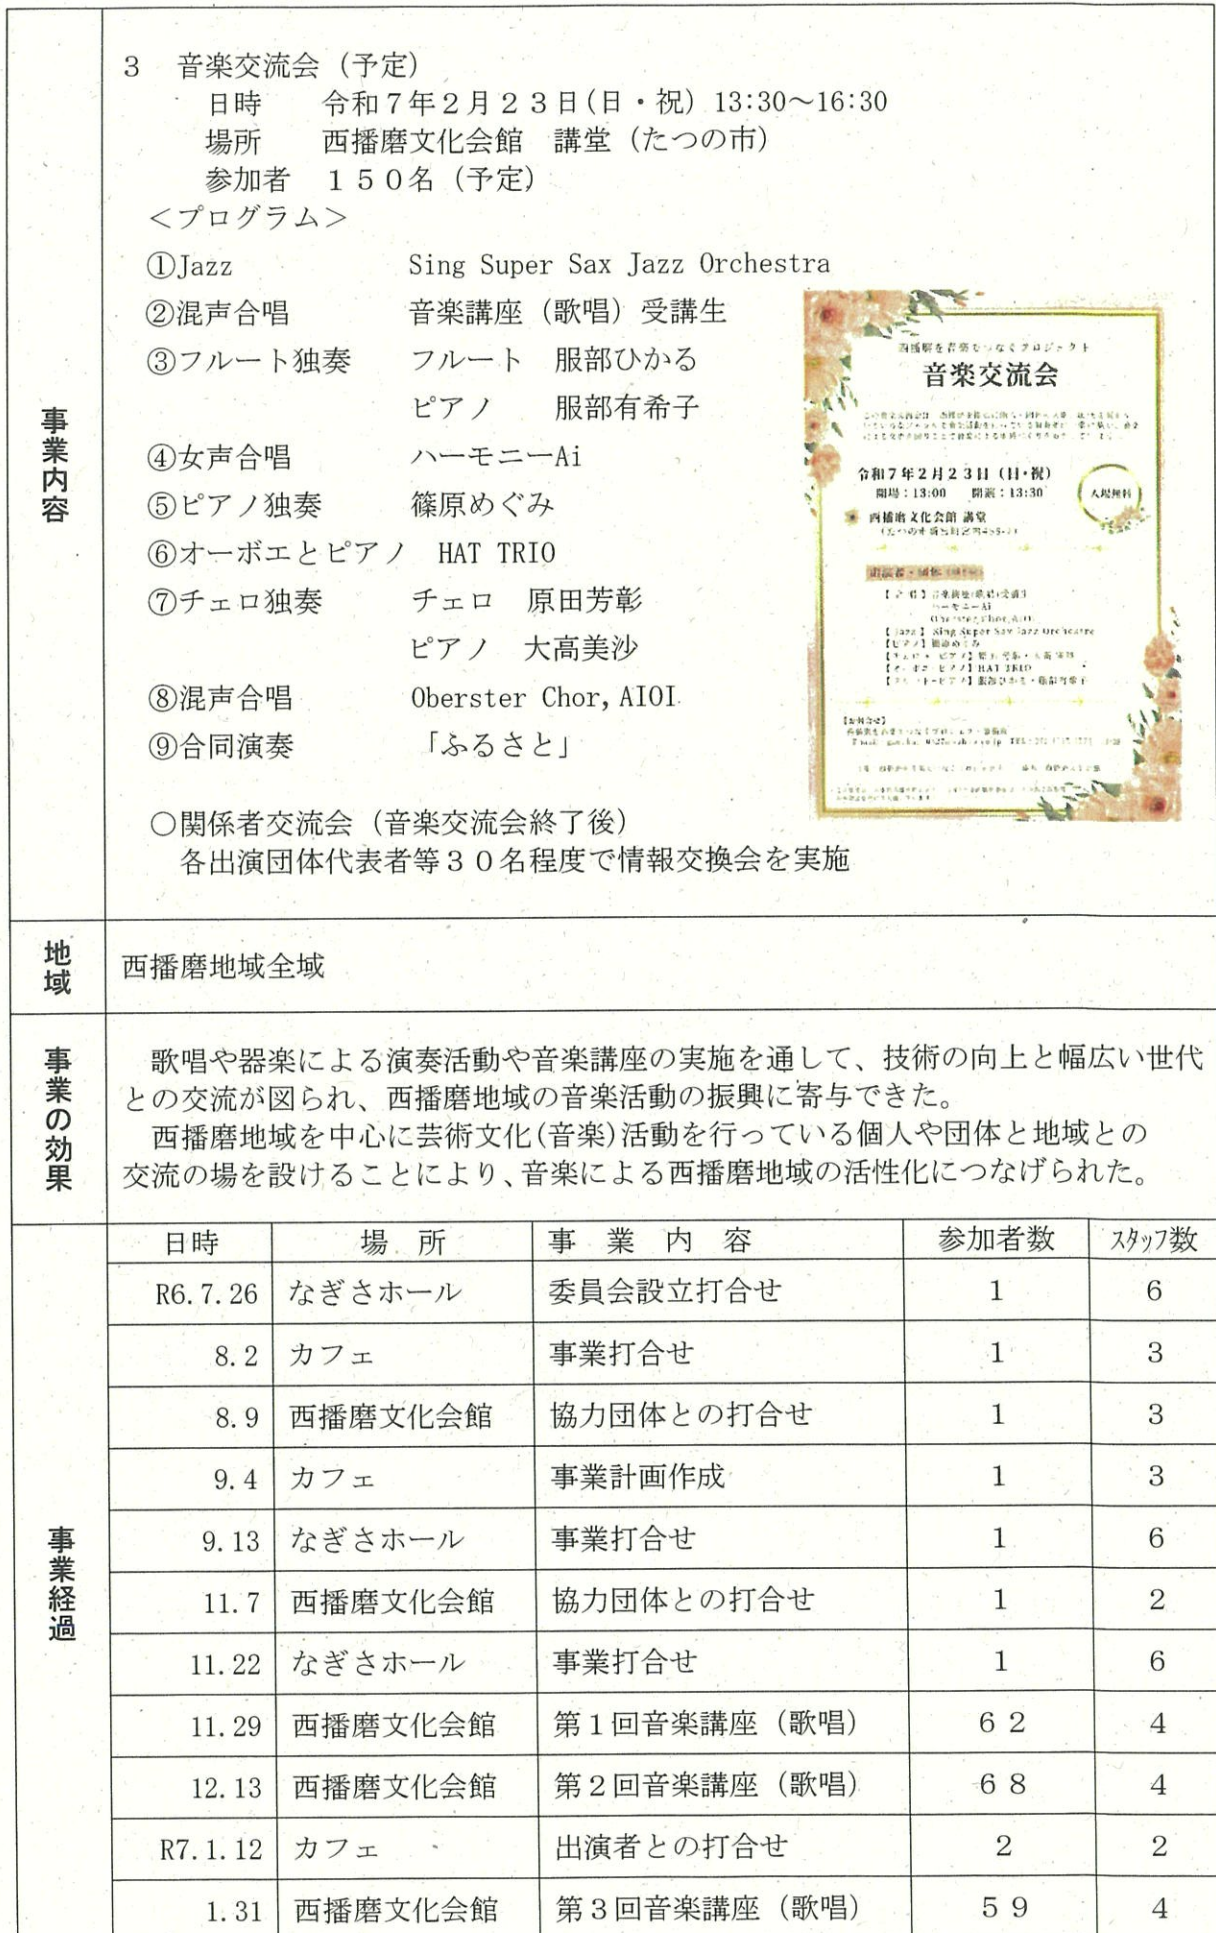 事業内容
3　音楽交流会（予定）
日時　　令和７年２月２３日(日・祝) 13:30～16:30
場所　　西播磨文化会館　講堂（たつの市）
参加者　１５０名（予定）
＜プログラム＞
①Jazz　Sing Super Sax Jazz Orchestra
②混声合唱　音楽講座（歌唱）受講生
③フルート独奏　フルート　服部ひかる
ピアノ　服部有希子
④女声合唱　ハーモニーAi
⑤ピアノ独奏　篠原めぐみ
⑥オーボエとピアノ　HAT TRIO
⑦チェロ独奏　チェロ　原田芳彰
ピアノ　大高美沙
⑧混声合唱　Oberster Chor, AIOI
⑨合同演奏　「ふるさと」
○関係者交流会（音楽交流会終了後）
各出演団体代表者等３０名程度で情報交換会を実施
西播磨を音楽でつなぐプロジェクト
音楽交流会
令和７年２月２３日（日・祝）
開場：13:00　開演：13:30
入場無料
西播磨文化会館 講堂
ハーモニーAi
【Jazz】Sing Super Sax Jazz Orchestra
HAT TRIO
地域
西播磨地域全域
事業の効果
歌唱や器楽による演奏活動や音楽講座の実施を通して、技術の向上と幅広い世代
との交流が図られ、西播磨地域の音楽活動の振興に寄与できた。
西播磨地域を中心に芸術文化(音楽)活動を行っている個人や団体と地域との
交流の場を設けることにより、音楽による西播磨地域の活性化につなげられた。
事業経過
日時　場所　事業内容　参加者数　スタッフ数
R6.7.26　なぎさホール　委員会設立打合せ　1　6
8.2　カフェ　事業打合せ　1　3
8.9　西播磨文化会館　協力団体との打合せ　1　3
9.4　カフェ　事業計画作成　1　3
9.13　なぎさホール　事業打合せ　1　6
11.7　西播磨文化会館　協力団体との打合せ　1　2
11.22　なぎさホール　事業打合せ　1　6
11.29　西播磨文化会館　第１回音楽講座（歌唱）　６２　4
12.13　西播磨文化会館　第２回音楽講座（歌唱）　６８　4
R7.1.12　カフェ　出演者との打合せ　2　2
1.31　西播磨文化会館　第３回音楽講座（歌唱）　５９　4